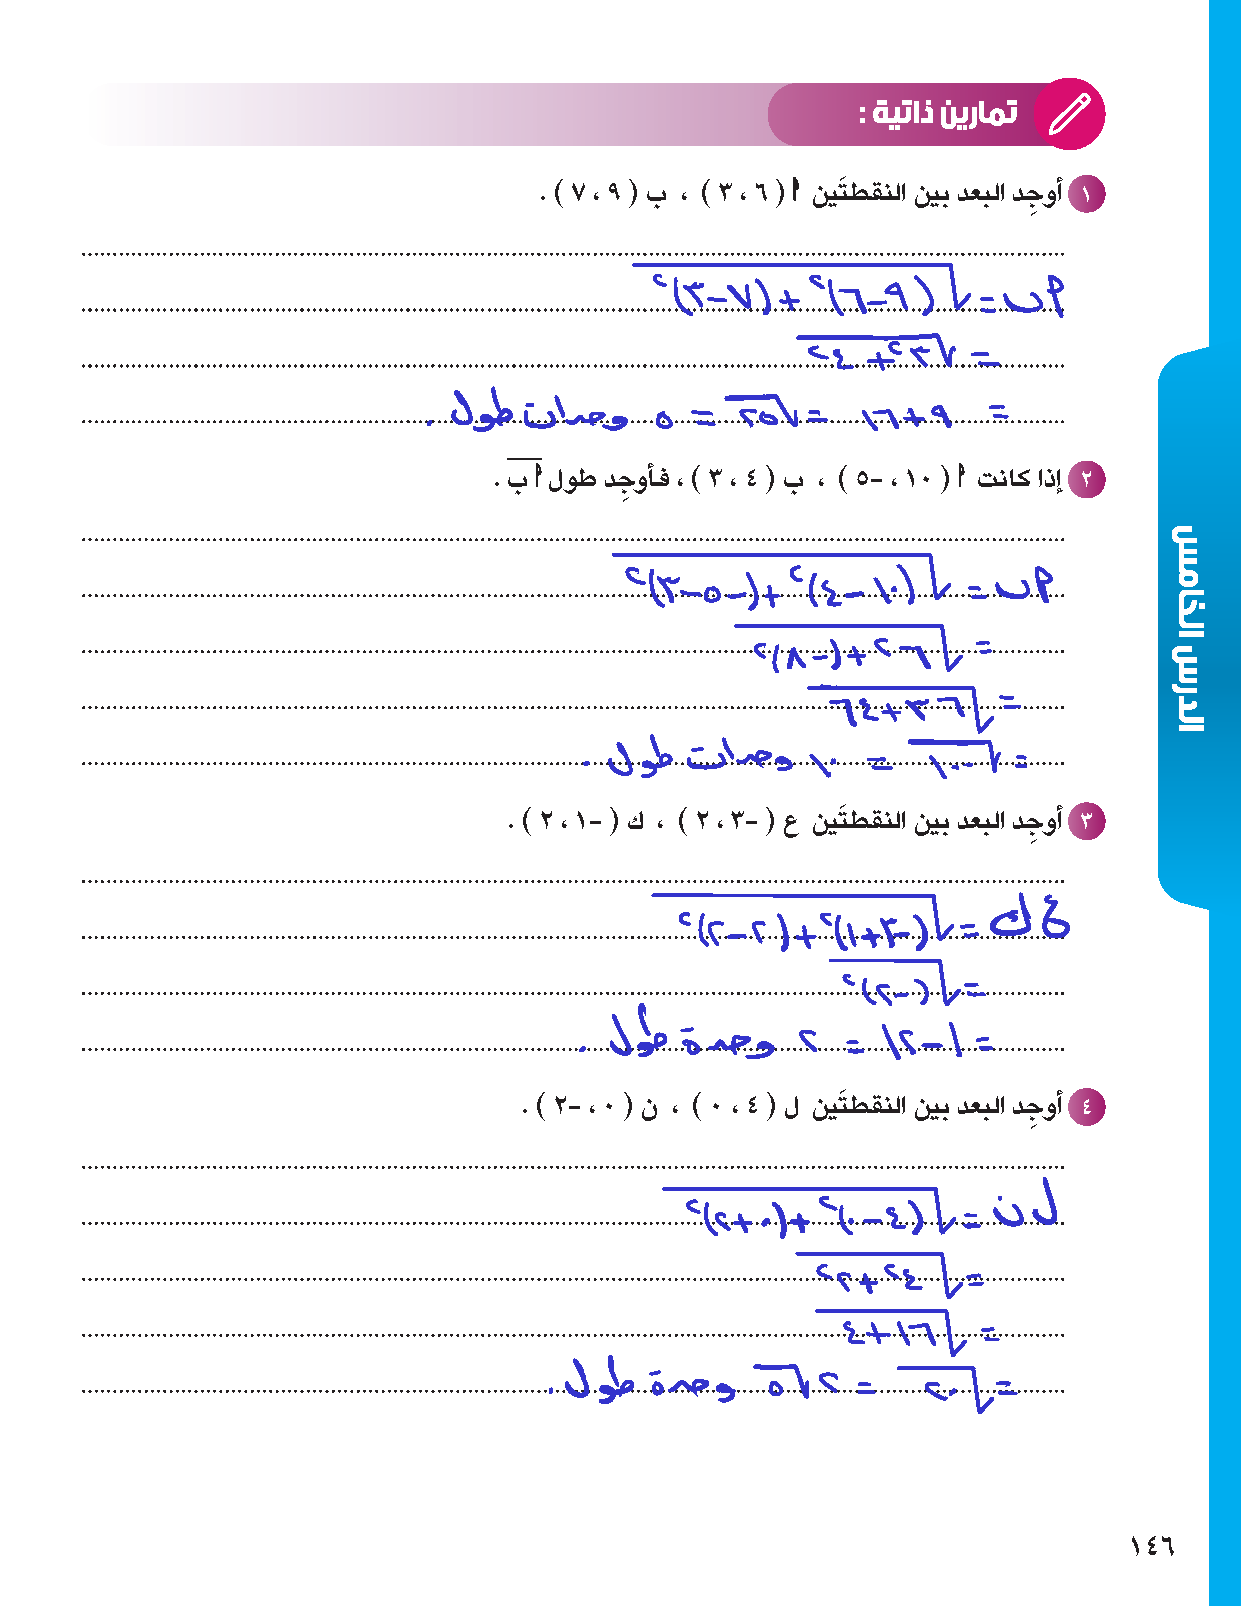 تمارين ذاتية :
١ أوجِد البعد بين النقطتَين أ ( ٦ ، ٣ ) ، ب ( ٩ ، ٧ ) .
أب = √(٩-٦)² + (٧-٣)²
= √٣² + ٤²
= ٩+١٦ = √٢٥ = ٥ وحدات طول .
٢ إذا كانت أ ( ١٠ ، -٥ ) ، ب ( ٤ ، ٣ ) ، فأوجِد طول أب .
أب = √(١٠-٤)² + (-٥-٣)²
= √٦² + (-٨)²
= √٣٦+٦٤
= √١٠٠ = ١٠ وحدات طول .
٣ أوجِد البعد بين النقطتَين ع ( -٣ ، ٢ ) ، ك ( -١ ، ٢ ) .
ع ك = √(-٣+١)² + (٢-٢)²
= √(-٢)²
= |-٢| = ٢ وحدة طول .
٤ أوجِد البعد بين النقطتَين ل ( ٤ ، ٠ ) ، ن ( ٠ ، -٢ ) .
ل ن = √(٤-٠)² + (٠+٢)²
= √٤² + ٢²
= √١٦+٤
= √٢٠ = ٢√٥ وحدة طول .
الدرس الخامس
١٤٦